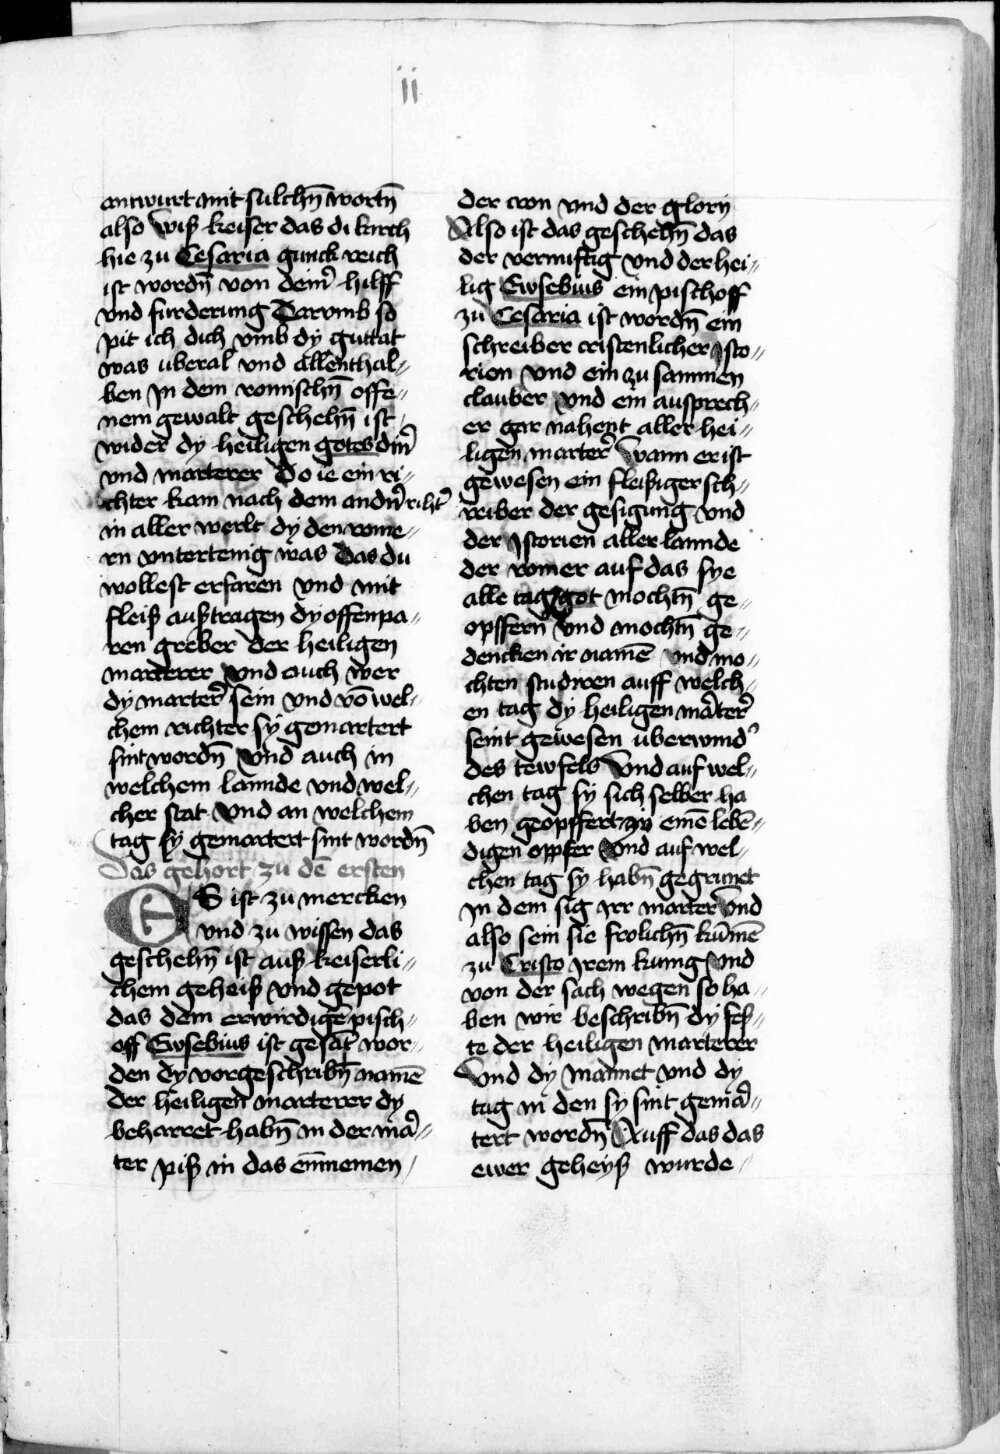 ii
antwurt mit sulchn̄ wortn̄
also Wiß keiser das di kirch
hie zu Cesaria gnuck reich
ist wordn̄ von deinr̄ hilff
vnd furderung Darvmb so
pit ich dich vmb dy guttat
was uberal vnd allenthal〃
ben Jn dem romischn̄ offe〃
nem gewalt geschehn̄ ist
wider dy heiligen gotes din̄
vnd marterer Do ie ein ri〃
chter kam nach dem andn̄ riht̄
in aller werlt dy den rome〃
rn vntertenig was Das du
wollest erfaren vnd mit
fleiß außtragen dy offenpa〃
ren greber der heiligen
marterer vnd auch wer
dy marter̄ sein vnd vō wel〃
chem richter sy gemartert
sint wordn̄ Vnd auch in
welchem lannde vnd wel〃
cher stat Vnd an welchem
tag sy gemartert sint wordn̄
Das gehort zu dē ersten
ES ist zu mercken
vnd zu wissen das
geschehn̄ ist auß keiserli〃
chem geheiß vnd gepot
das dem erwirdigē pisch〃
off Ewsebius ist gesāt wor〃
den dy vorgeschribn̄ namē
der heiligen marterer dy
beharret habn̄ in der mar̄〃
ter piß in das ein̄nemen
der cron vnd der glorij
Also ist das geschehn̄ das
der vernuftig vnd der hei〃
lig Ewsebius ein pischoff
zu Cesaria ist wordn̄ ein
schreiber cristenlicher Jsto〃
rien vnd ein zu sammen
clauber vnd ein aussprech〃
er gar nahent aller hei〃
ligen marter̄ Wann er ist
gewesen ein fleißiger sch〃
reiber der gesigung vnd
der Jstorien aller lannde
der romer auf das sye
alle tag got mochtn̄ ge〃
opffern Vnd mochtn̄ ge〃
dencken ir namē Vnd mo〃
chten studiren auff welch〃
en tag dy heiligen mārter̄
seint gewesen uberwind̄
des tewfels Vnd auf wel〃
chen tag sy sich selber ha
ben geopffert zw einē lebē〃
digen opffer Vnd auf wel〃
chen tag sy habn̄ gegrunet
Jn dem sig jrr marter Vnd
also sein sie frolichn̄ kūmē
zu Cristo jrem kunig Vnd
von der sach wegen so ha〃
ben wir beschribn̄ dy fes〃
te der heiligen marterer
Vnd dy manet vnd dy
tag in den sy sint gemar̄〃
tert wordn̄ Auff das das
ewer geheyß wurde